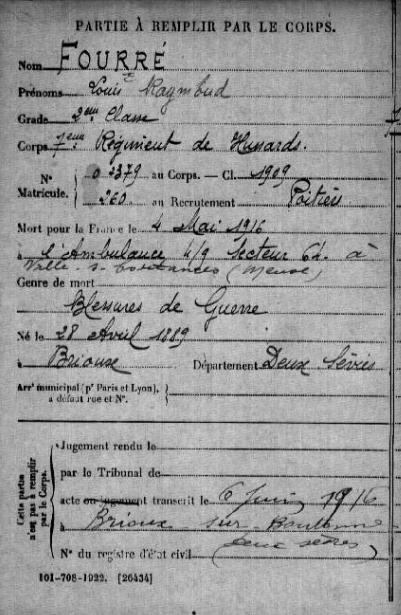 PARTIE À REMPLIR PAR LE CORPS.
Nom FOURRÉ
Prénoms Louis Raymond
Grade 2eme Classe
Corps 1er Régiment de Hussards.
N° Matricule. 02379 au Corps. — Cl. 1909
260 au Recrutement Poitiers
Mort pour la France le 4 Mai 1916
à l'Ambulance 4/9 Secteur 64 à
(Meuse)
Genre de mort
Blessures de Guerre
Né le 28 Avril 1889
à Brioux Département Deux Sèvres
Arrt municipal (pr Paris et Lyon),
à défaut rue et N°.
Cette partie n'est pas à remplir par le Corps.
Jugement rendu le
par le Tribunal de
acte ou jugement transcrit le 6 Juin 1916
à Brioux sur Boutonne
(Deux Sèvres)
N° du registre d'état civil
101-708-1922. [26434]